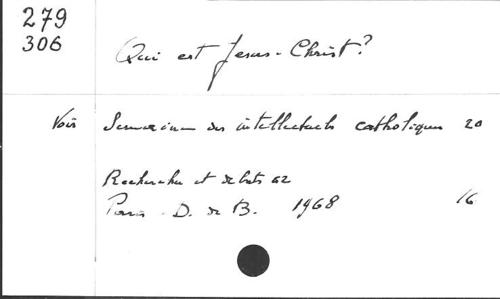 279
306
Qui est Jesus-Christ?
Voir Semaine des intellectuels catholiques 20
Recherches et debats 62
Paris. D. de B. 1968 16